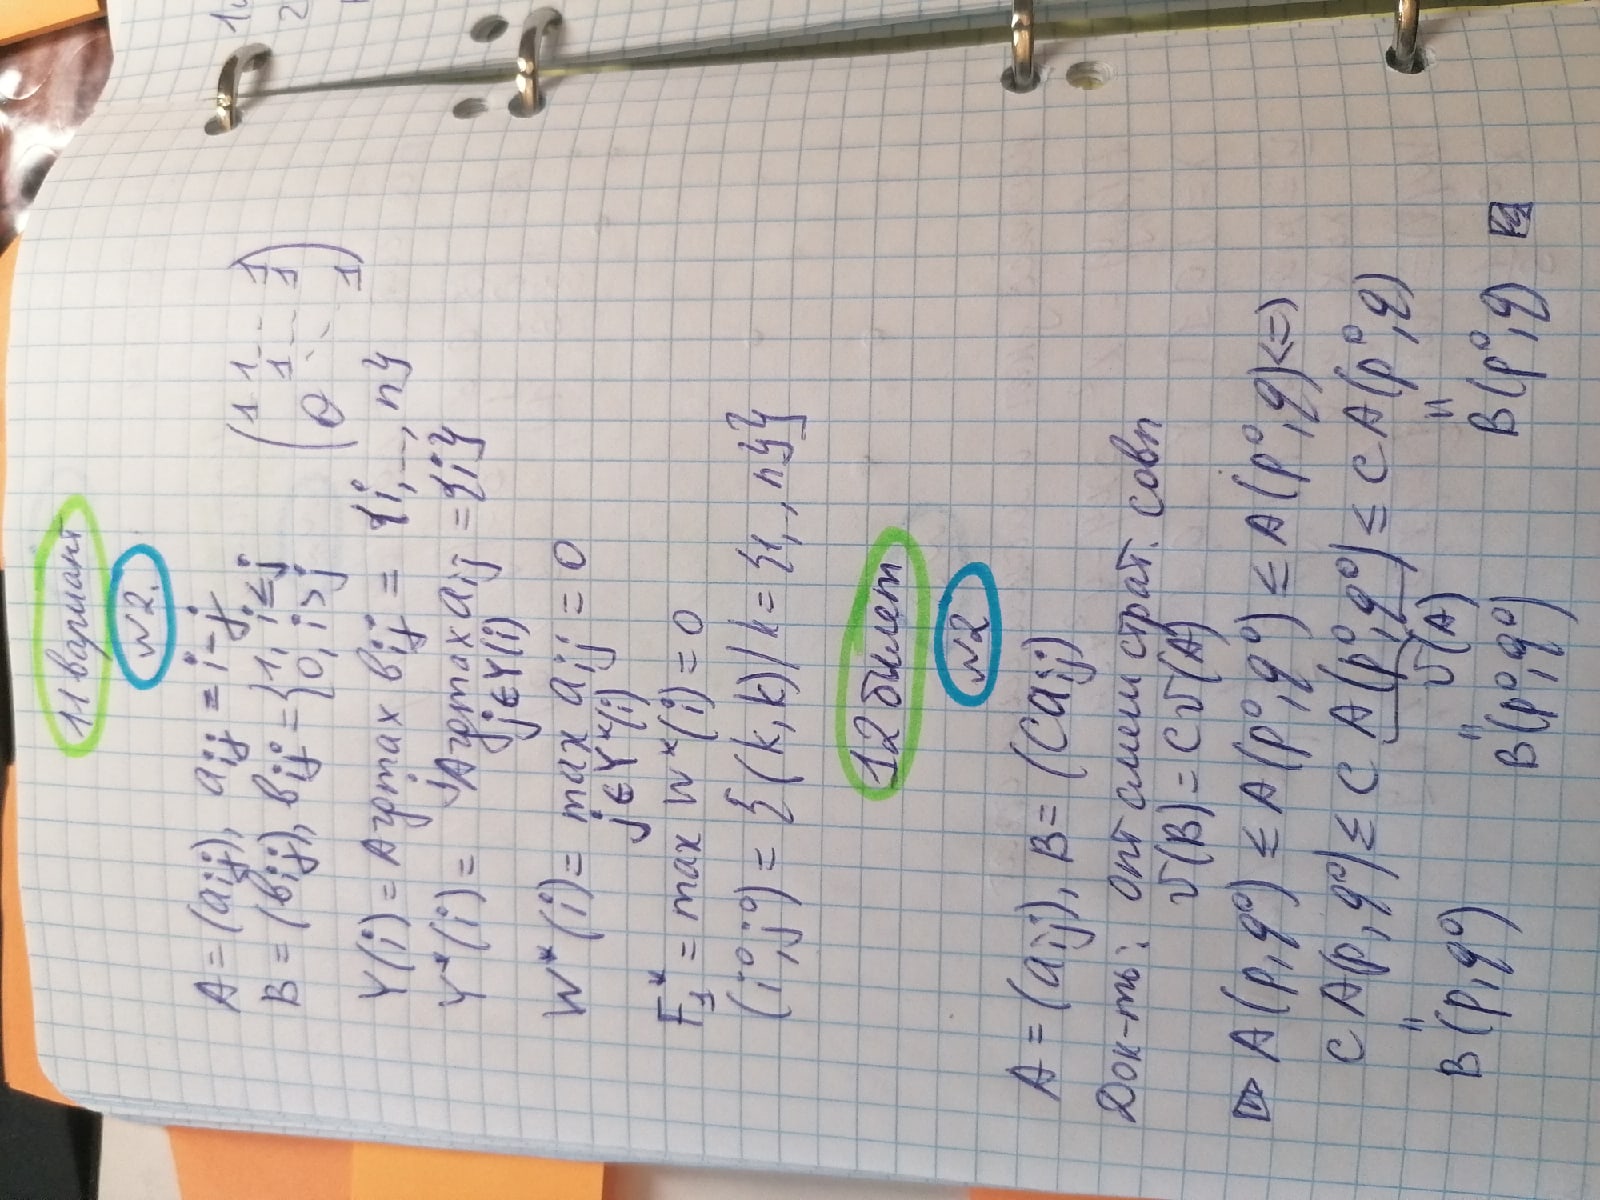 11 вариант
№2.
A = (aij), aij = i-j
B = (bij), bij = { 1, i ≤ j
0, i > j
( 1 1 -- 1
1 -- 1
0 ⋱ 1 )
Y(i) = Argmax bij = {i, ..., n}
Y*(i) = Argmax aij = {i}
j∈Y(i)
W*(i) = max aij = 0
j∈Y*(i)
F1* = max W*(i) = 0
(i⁰, j⁰) = {(k,k) | k = {1, , n}}
12 билет
№2
A = (aij), B = (caij)
Док-ть: опт смеш страт. совп
v(B) = c v(A)
▷ A(p,q⁰) ≤ A(p⁰,q⁰) ≤ A(p⁰,q) <=>
c A(p,q⁰) ≤ c A(p⁰,q⁰) ≤ c A(p⁰,q)
" v(A) "
B(p,q⁰) " B(p⁰,q⁰) B(p⁰,q)